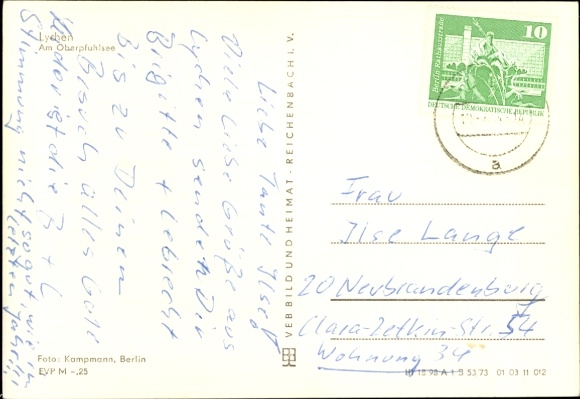 Lychen
Am Oberpfuhlsee
Liebe Tante Ilse!
Viele liebe Grüße aus
Lychen senden Dir
Brigitte + Lebrecht
Bis zu Deinem
Besuch alles Gute
Leider ist die
Stimmung nicht so gut, wie im
letzten Jahr!!
Foto: Kampmann, Berlin
EVP M –,25
VEB BILD UND HEIMAT · REICHENBACH i. V.
Berlin Rathausstraße
10
DEUTSCHE DEMOKRATISCHE REPUBLIK
a
Frau
Ilse Lange
20 Neubrandenburg
Clara-Zetkin-Str. 54
Wohnung 34
A 1 B 53 73 01 03 11 012